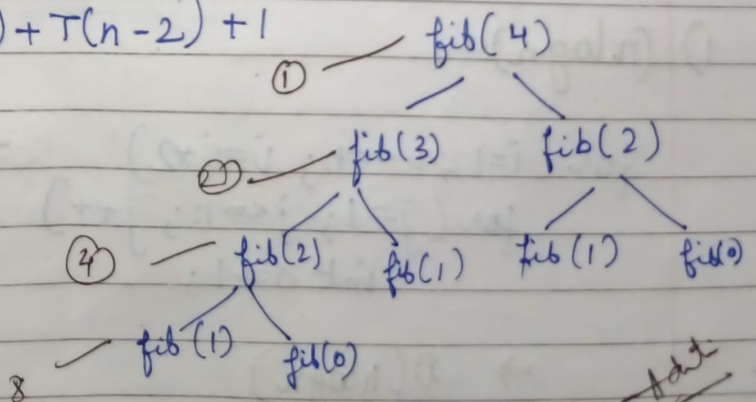 ) + T(n-2) + 1
fib(4)
①
fib(3) fib(2)
②
④ fib(2) fib(1) fib(1) fib(0)
fib(1) fib(0)
8